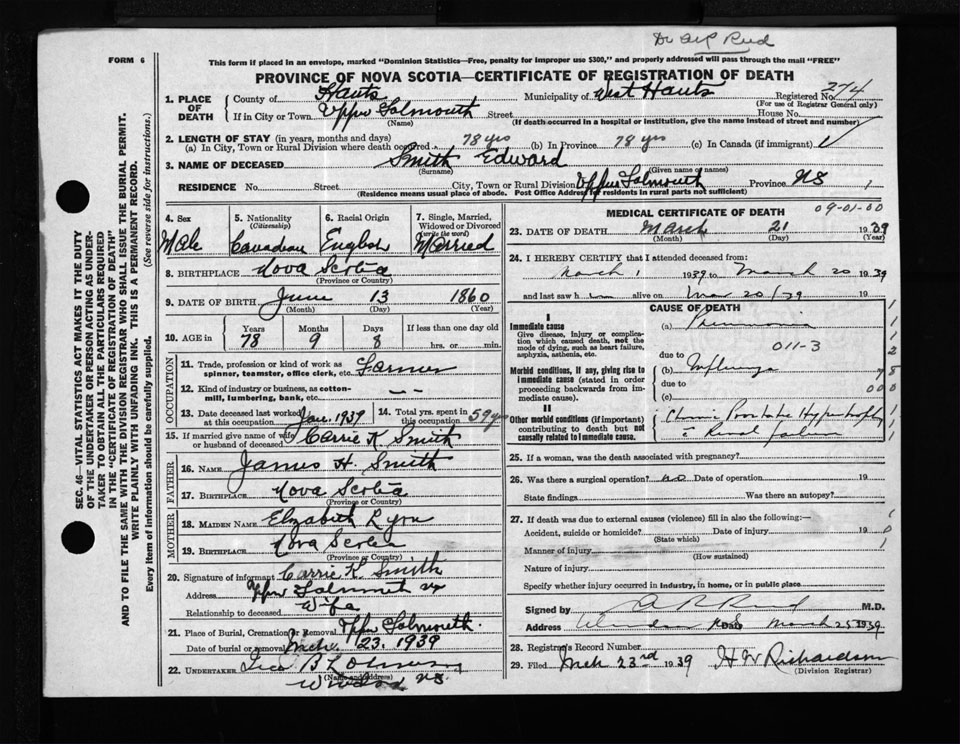 Dr Reid
FORM 6
This form if placed in an envelope, marked "Dominion Statistics—Free, penalty for improper use $300," and properly addressed will pass through the mail "FREE"
PROVINCE OF NOVA SCOTIA—CERTIFICATE OF REGISTRATION OF DEATH
1. PLACE OF DEATH
County of Hants Municipality of West Hants Registered No. 274
(For use of Registrar General only)
If in City or Town Upper Falmouth Street House No.
(Name) (If death occurred in a hospital or institution, give the name instead of street and number)
2. LENGTH OF STAY (in years, months and days)
(a) In City, Town or Rural Division where death occurred 78 yrs (b) In Province 78 yrs (c) In Canada (if immigrant)
3. NAME OF DECEASED Smith Edward
(Surname) (Given name or names)
RESIDENCE No. Street City, Town or Rural Division Upper Falmouth Province NS 1
(Residence means usual place of abode. Post Office Address for residents in rural parts not sufficient)
SEC. 46—VITAL STATISTICS ACT MAKES IT THE DUTY
OF THE UNDERTAKER OR PERSON ACTING AS UNDER-
TAKER TO OBTAIN ALL THE PARTICULARS REQUIRED
IN THE "CERTIFICATE OF REGISTRATION OF DEATH"
AND TO FILE THE SAME WITH THE DIVISION REGISTRAR WHO SHALL ISSUE THE BURIAL PERMIT.
WRITE PLAINLY WITH UNFADING INK. THIS IS A PERMANENT RECORD.
Every item of information should be carefully supplied. (See reverse side for instructions.)
4. Sex
Male
5. Nationality
(Citizenship)
Canadian
6. Racial Origin
English
7. Single, Married, Widowed or Divorced
(write the word)
Married
8. BIRTHPLACE Nova Scotia
(Province or Country)
9. DATE OF BIRTH June 13 1860
(Month) (Day) (Year)
10. AGE in Years Months Days If less than one day old
78 9 8 hrs. or min.
OCCUPATION
11. Trade, profession or kind of work as
spinner, teamster, office clerk, etc. Farmer
12. Kind of industry or business, as cotton-
mill, lumbering, bank, etc. — —
13. Date deceased last worked at this occupation Jan. 1939
14. Total yrs. spent in this occupation 59 yrs
15. If married give name of wife or husband of deceased Carrie K Smith
FATHER
16. NAME James H. Smith
17. BIRTHPLACE Nova Scotia
(Province or Country)
MOTHER
18. MAIDEN NAME Elizabeth Ryon
19. BIRTHPLACE Nova Scotia
(Province or Country)
20. Signature of informant Carrie K. Smith
Address Upper Falmouth
Relationship to deceased Wife
21. Place of Burial, Cremation or Removal Upper Falmouth.
Date of burial or removal Mch. 23. 1939
22. UNDERTAKER
(Name and Address)
Windsor NS
MEDICAL CERTIFICATE OF DEATH 09-01-00
23. DATE OF DEATH March 21 1939
(Month) (Day) (Year)
24. I HEREBY CERTIFY that I attended deceased from:
March 1 1939 to March 20 1939
and last saw him alive on Mar 20/39 19
CAUSE OF DEATH
I
Immediate cause
Give disease, injury or complica-
tion which caused death, not the
mode of dying, such as heart failure,
asphyxia, asthenia, etc.
(a) Pneumonia
011-3
due to
Morbid conditions, if any, giving rise to
immediate cause (stated in order
proceeding backwards from im-
mediate cause).
(b) Influenza
due to
(c)
II
Other morbid conditions (if important)
contributing to death but not
causally related to immediate cause.
Chronic Prostate Hypertrophy
c Renal failure
25. If a woman, was the death associated with pregnancy?
26. Was there a surgical operation? no Date of operation 19
State findings Was there an autopsy?
27. If death was due to external causes (violence) fill in also the following:—
Accident, suicide or homicide? Date of injury 19
(State which)
Manner of injury
(How sustained)
Nature of injury
Specify whether injury occurred in industry, in home, or in public place
Signed by A R Reid M.D.
Address Windsor NS March 25 1939
28. Registrar's Record Number
29. Filed Mch 23rd 1939 H W Richardson
(Division Registrar)